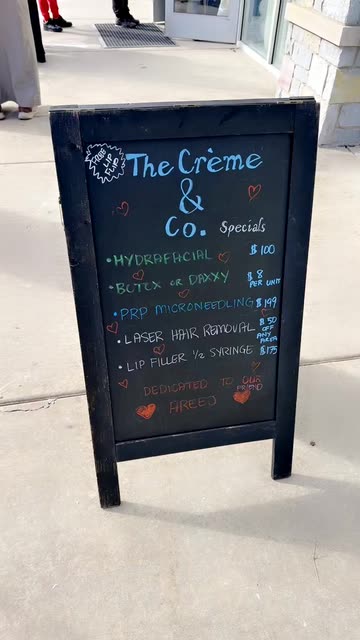 FREE
LIP
FLIP
The Crème
&
Co. Specials
• HYDRAFACIAL $100
• BOTOX OR DAXXY $8 PER UNIT
• PRP MICRONEEDLING $199
• LASER HAIR REMOVAL $50 OFF ANY AREA
• LIP FILLER 1/2 SYRINGE $175
DEDICATED TO OUR FRIEND
AREEJ